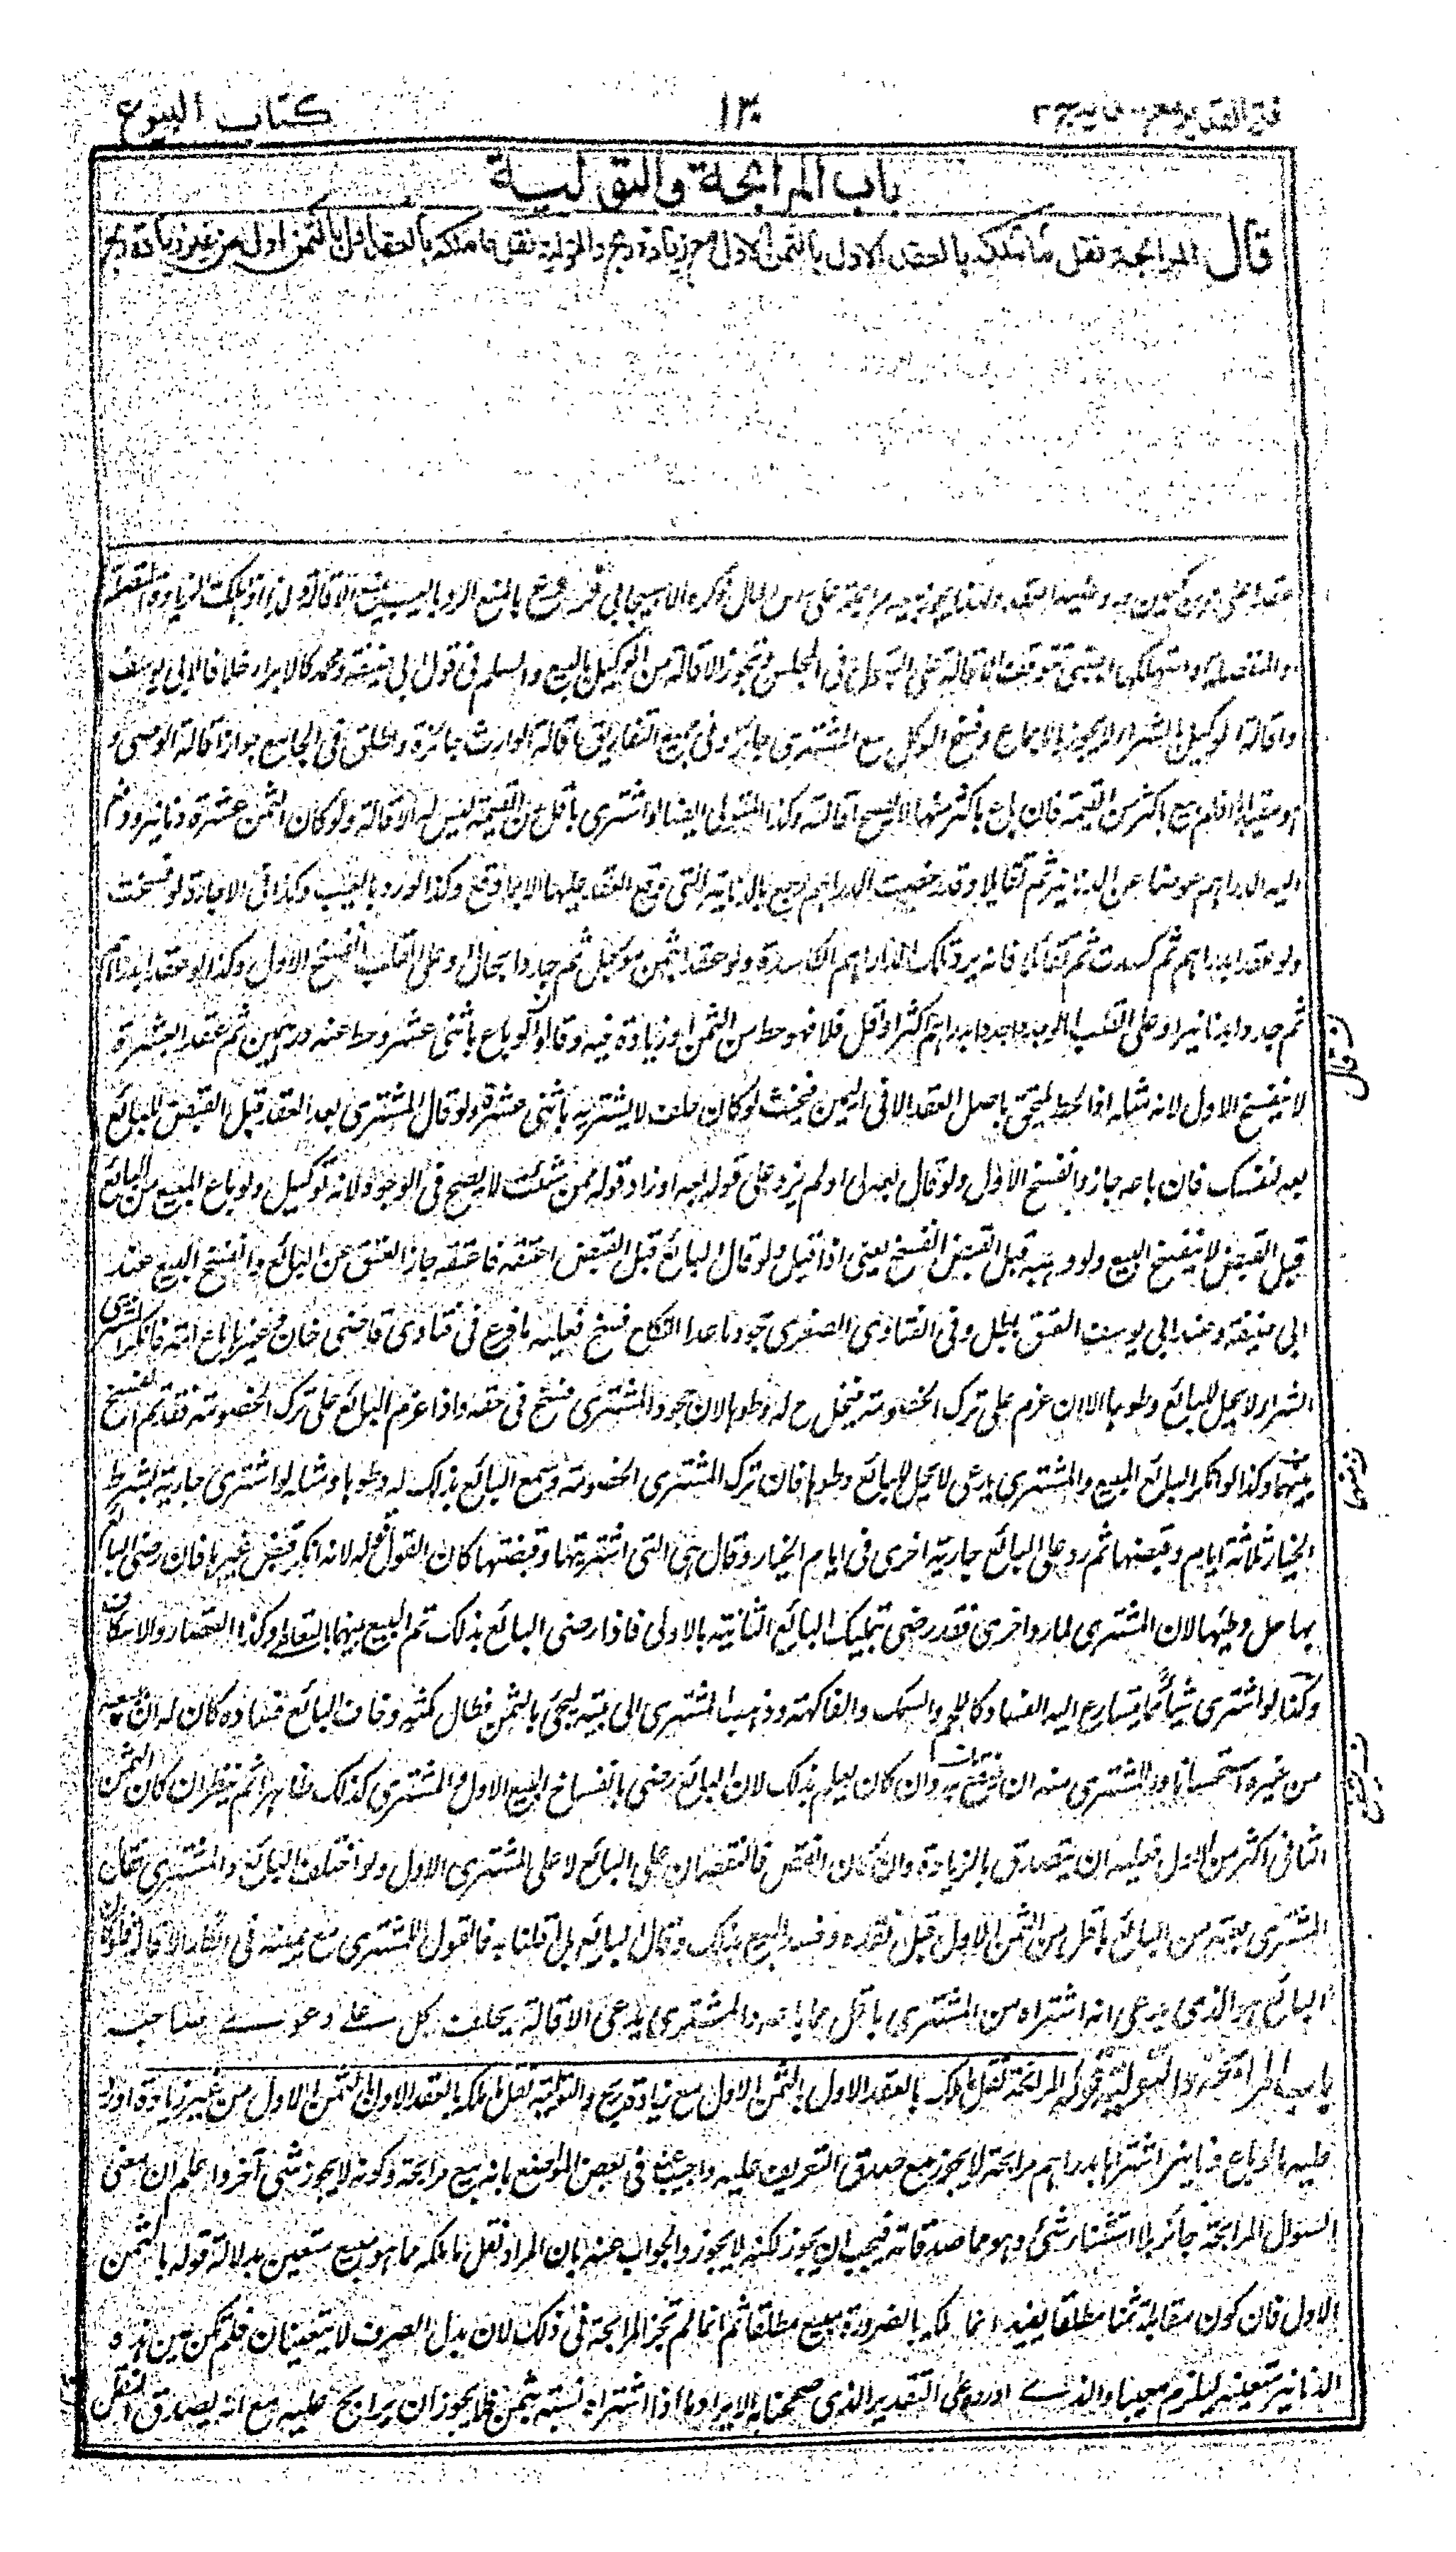 كتاب البيوع
١٣٠
فتح القدير مع
باب المرابحة والتولية
قال المرابحة نقل ما ملكه بالعقد الاول بالثمن الاول مع زيادة ربح والتولية نقل ما ملكه بالعقد الاول بالثمن الاول من غير زيادة ربح
والمقصلة واستهلكها اجنبي تتوقف الاقالة على القبول فى المجلس وتجوز الاقالة من الوكيل بالبيع والسلم فى قول ابى حنيفة ومحمد كالابراء خلافا لابى يوسف
واقالة الوكيل بالشراء لا يجوز بالاجماع وفسخ الموكل مع المشترى جائز وفى جمع التفاريق اقالة الوارث جائزة واطلق فى الجامع جواز اقالة الوصى
باع باكثر من القيمة فان باع باكثر منها لا يصح اقالته وكذا المتولى ايضا لو اشترى باقل من القيمة ليس له الاقالة ولو كان الثمن عشرة دنانير ودفع
اليه الدراهم عوضا عن الدنانير ثم تقايلا وقد رخصت الدراهم رجع بالدنانير التى وقع العقد عليها لا بما دفع وكذا لورد بالعيب وكذا فى الاجارة لو فسخت
ولو عقد بدراهم ثم كسدت ثم تقايلا فانه يرد تلك الدراهم الكاسدة ولو عقد بثمن مؤجل ثم جددا بحال او على القلب انفسخ الاول وكذا لو عقد بدراهم
ثم جددا بدنانير او على القلب اما لو جددا بدراهم اكثر او اقل فلا فهو حط من الثمن او زيادة فيه وقالوا لو باع باثنى عشر وحط عنه درهمين ثم عقد بعشرة
لا ينفسخ الاول لانه مثله اذ الحط يلتحق باصل العقد الا فى اليمين فيحنث لو كان حلف لا يشتريه باثنى عشر ولو قال المشترى بعد العقد قبل القبض للبائع
بعه لنفسك فان باعه جاز وانفسخ الاول ولو قال بعه لى او لم يزد على قوله بعه او زاد قوله ممن شئت لا يصح فى الوجوه لانه توكيل ولو باع المبيع من البائع
قبل القبض لا ينفسخ البيع ولو وهبه قبل القبض انفسخ يعنى اذا قبل ولو قال للبائع قبل القبض اعتقه فاعتقه جاز العتق عن البائع وانفسخ البيع عند
ابى حنيفة وعند ابى يوسف العتق باطل وفى الفتاوى الصغرى جحود ما عدا النكاح فسخ فعليه ما فرع فى فتاوى قاضى خان وغيرها باع امة فانكر المشترى
الشراء لا يحل للبائع وطؤها الا ان عزم على ترك الخصومة فيحل ح له وطؤها لان جحود المشترى فسخ فى حقه واذا عزم البائع على ترك الخصومة فقد تم الفسخ
بينهما وكذا لو انكر البائع المبيع والمشترى يدعى لا يحل للبائع وطؤها فان ترك المشترى الخصومة وسمع البائع بذلك له وطؤها ومثله لو اشترى جارية بشرط
الخيار ثلاثة ايام وقبضها ثم رد على البائع جارية اخرى فى ايام الخيار وقال هى التى اشتريتها وقبضتها كان القول قوله لانه انكر قبض غيرها فان رضى البائع
بها حل وطيها لان المشترى لما رد اخرى فقد رضى بتمليك البائع الثانية بالاولى فاذا رضى البائع بذلك تم البيع بينهما بالتعاطى وكذا القصار والاسكاف
وكذا لو اشترى شيأ مما يتسارع اليه الفساد كاللحم والسمك والفاكهة وذهب المشترى الى بيته ليجئ بالثمن فطال مكثه وخاف البائع فساده كان له ان يبيعه
من غيره استحسانا وللمشترى منه ان ينتفع به وان كان يعلم بذلك لان البائع رضى بانفساخ البيع الاول والمشترى كذلك ظاهرا ثم ينظر ان كان الثمن
الثانى اكثر من الاول فعليه ان يتصدق بالزيادة وان كان انقص فالنقصان على البائع لا على المشترى الاول ولو اختلف البائع والمشترى فقال
المشترى بعته من البائع باقل من الثمن الاول قبل نقده وفسد البيع بذلك وقال البائع بل تقايلنا فالقول للمشترى مع يمينه فى انكار الاقالة فلو كان
البائع هو الذى يدعى انه اشتراه من المشترى باقل مما باعه والمشترى يدعى الاقالة يحلف كل على دعوى صاحبه
باب المرابحة والتولية قوله المرابحة نقل ما ملك بالعقد الاول بالثمن الاول مع زيادة ربح والتولية نقل ما ملكه بالعقد الاول بالثمن الاول من غير زيادة اورد
عليه ما لو باع دنانير اشتراها بدراهم مرابحة لا يجوز مع صدق التعريف عليه واجيب عنه فى بعض المواضع بانه بيع مرابحة وكونه لا يجوز شئ آخر واعلم ان معنى
السوال المرابحة جائز بلا استثناء شئ وهو مما صدقاته فيجب ان يجوز لكنه لا يجوز والجواب عنه بان المراد نقل ما ملكه مما هو مبيع متعين بدلالة قوله بالثمن
الاول فان كون مقابلة ثمنا مطلقا يفيد انما ملكه بالضرورة مبيع مطلقا ثم انما لم تجز المرابحة فى ذلك لان بدل الصرف لا يتعينان فلم تكن عين هذه
الدنانير متعينة ليلزم مبيعا والذى اورد على التقدير الذى صححنا به الايراد ما اذا اشتراه نسيئة بثمن فلا يجوز ان يرابح عليه مع انه يصدق النقل